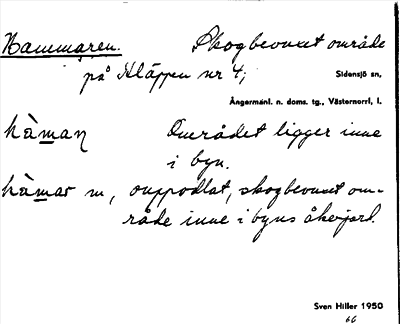 Hammaren. Skogbevuxet område
på Kläppen nr 4;
Sidensjö sn,
Ångermanl. n. doms. tg., Västernorrl. l.
hàmaṇ Området ligger inne
i byn.
hàmar m, ouppodlat, skogbevuxet om-
råde inne i byns åkerjord.
Sven Hiller 1950
66